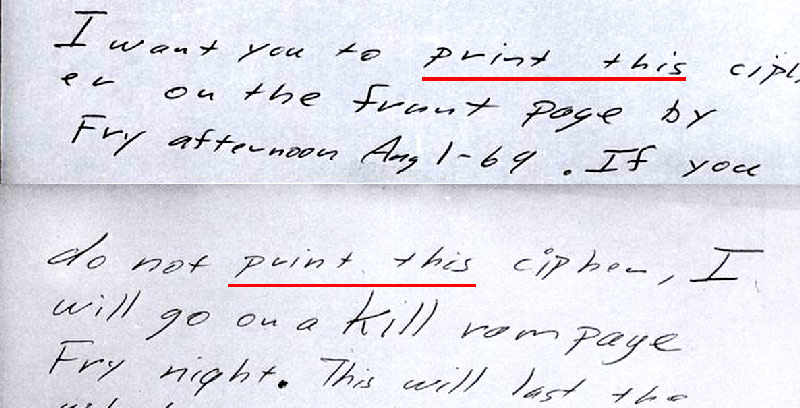 I want you to print this ciph
er on the frunt page by
Fry afternoon Aug 1-69. If you
do not print this cipher, I
will go on a Kill rampage
Fry night. This will last the